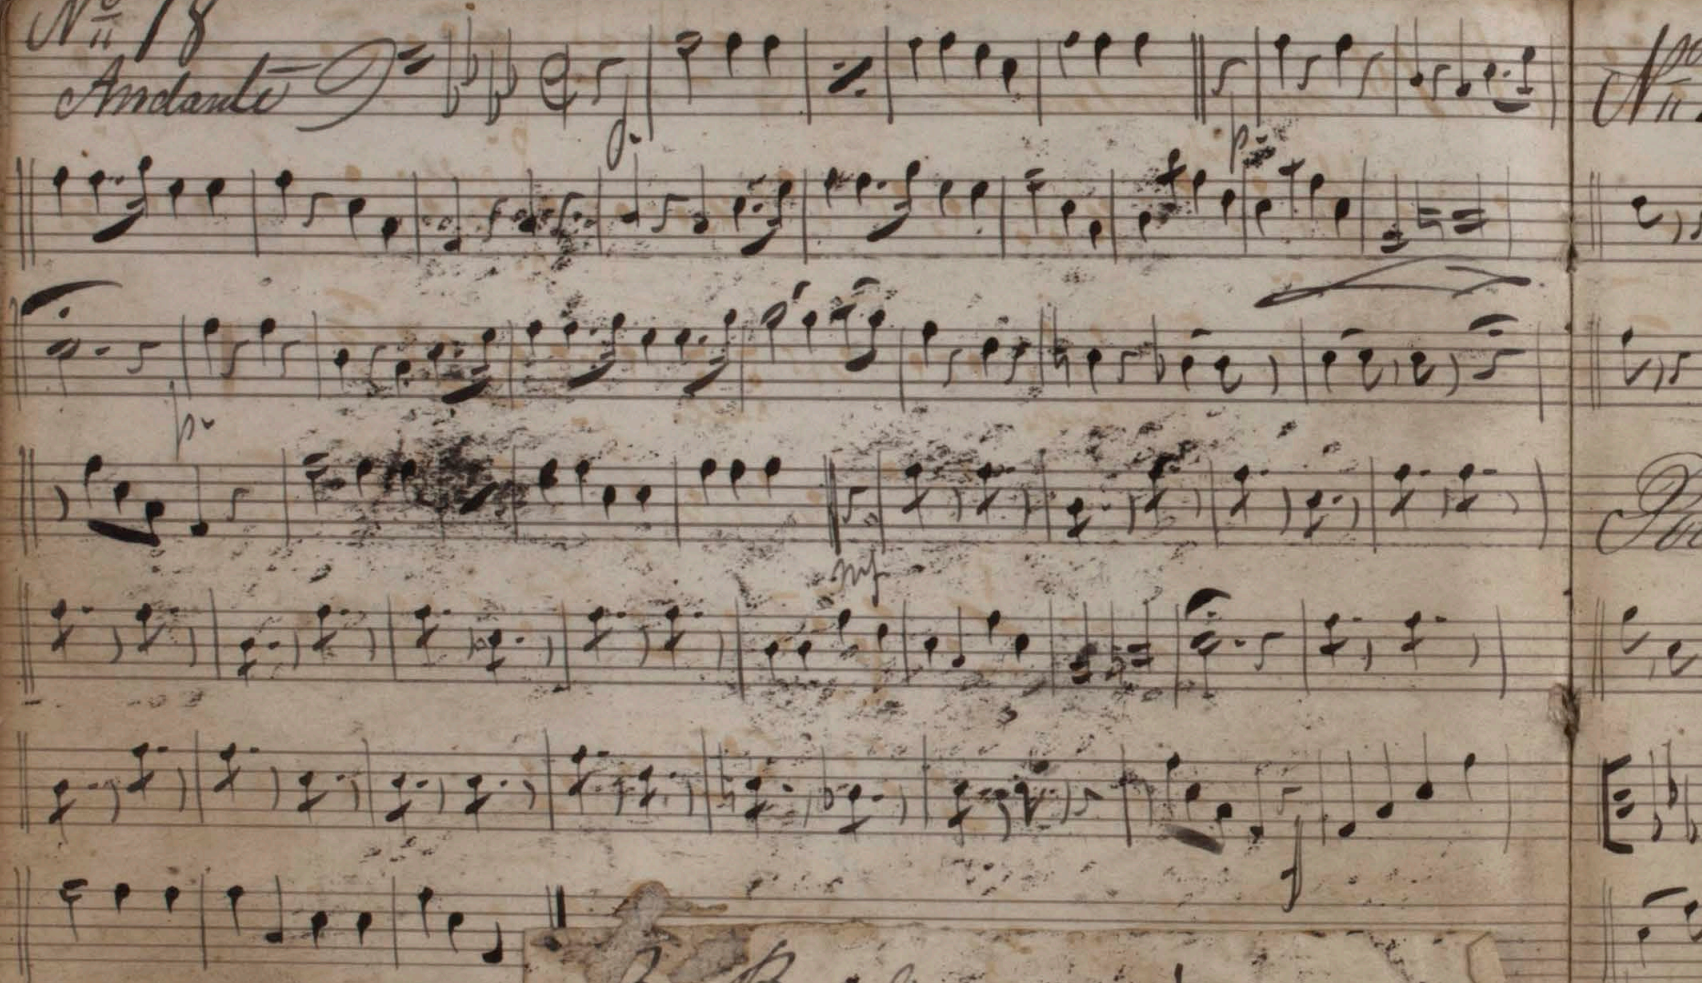 No 18
Andante
p.
p.
p.
mf
f
No